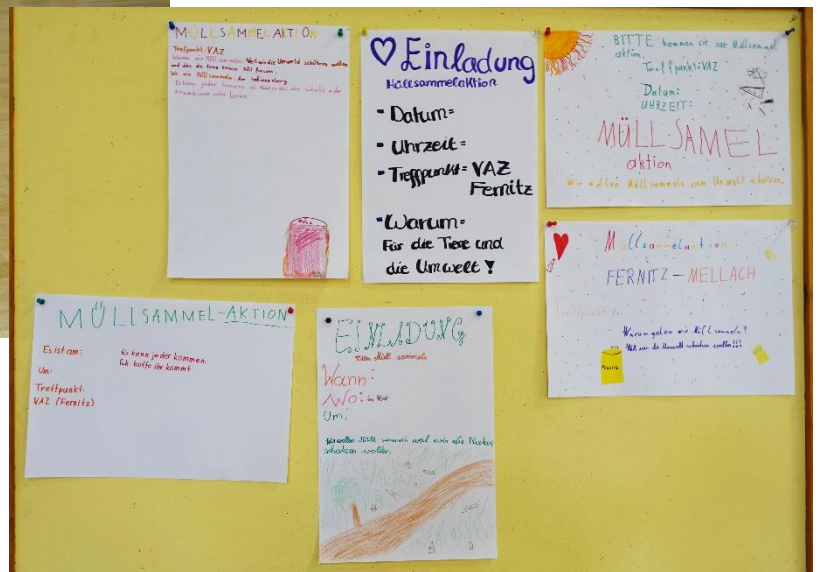 MÜLLSAMMELAKTION
Treffpunkt: VAZ
Warum wir Müll sammeln: Weil wir die Umwelt schützen wollen
und das die tiere keinen Müll fressen.
Wo wir Müll sammeln: Am
Es kann jeder kommen
Erwachsene oder
Einladung
Müllsammelaktion
- Datum=
- Uhrzeit=
- Treffpunkt= VAZ
Fernitz
- Warum=
Für die Tiere und
die Umwelt!
BITTE kommen sie zur Müllsammel
aktion.
Treffpunkt: VAZ
Datum:
UHRZEIT:
MÜLLSAMEL
aktion
Wir wollen Müll sammeln zum Umwelt schützen.
Müllsammelaktion
FERNITZ-MELLACH
Warum gehen wir Müll sammeln?
Weil wir die Umwelt schützen wollen!!!
MÜLLSAMMEL-AKTION
Es ist am:
Es kann jeder kommen.
Ich hoffe ihr kommt
Um:
Treffpunkt:
VAZ (Fernitz)
EINLADUNG
zum Müll sammeln
Wann:
Wo: in
Um:
Wir wollen Müll sammeln weil wir die Natur
schützen wollen.